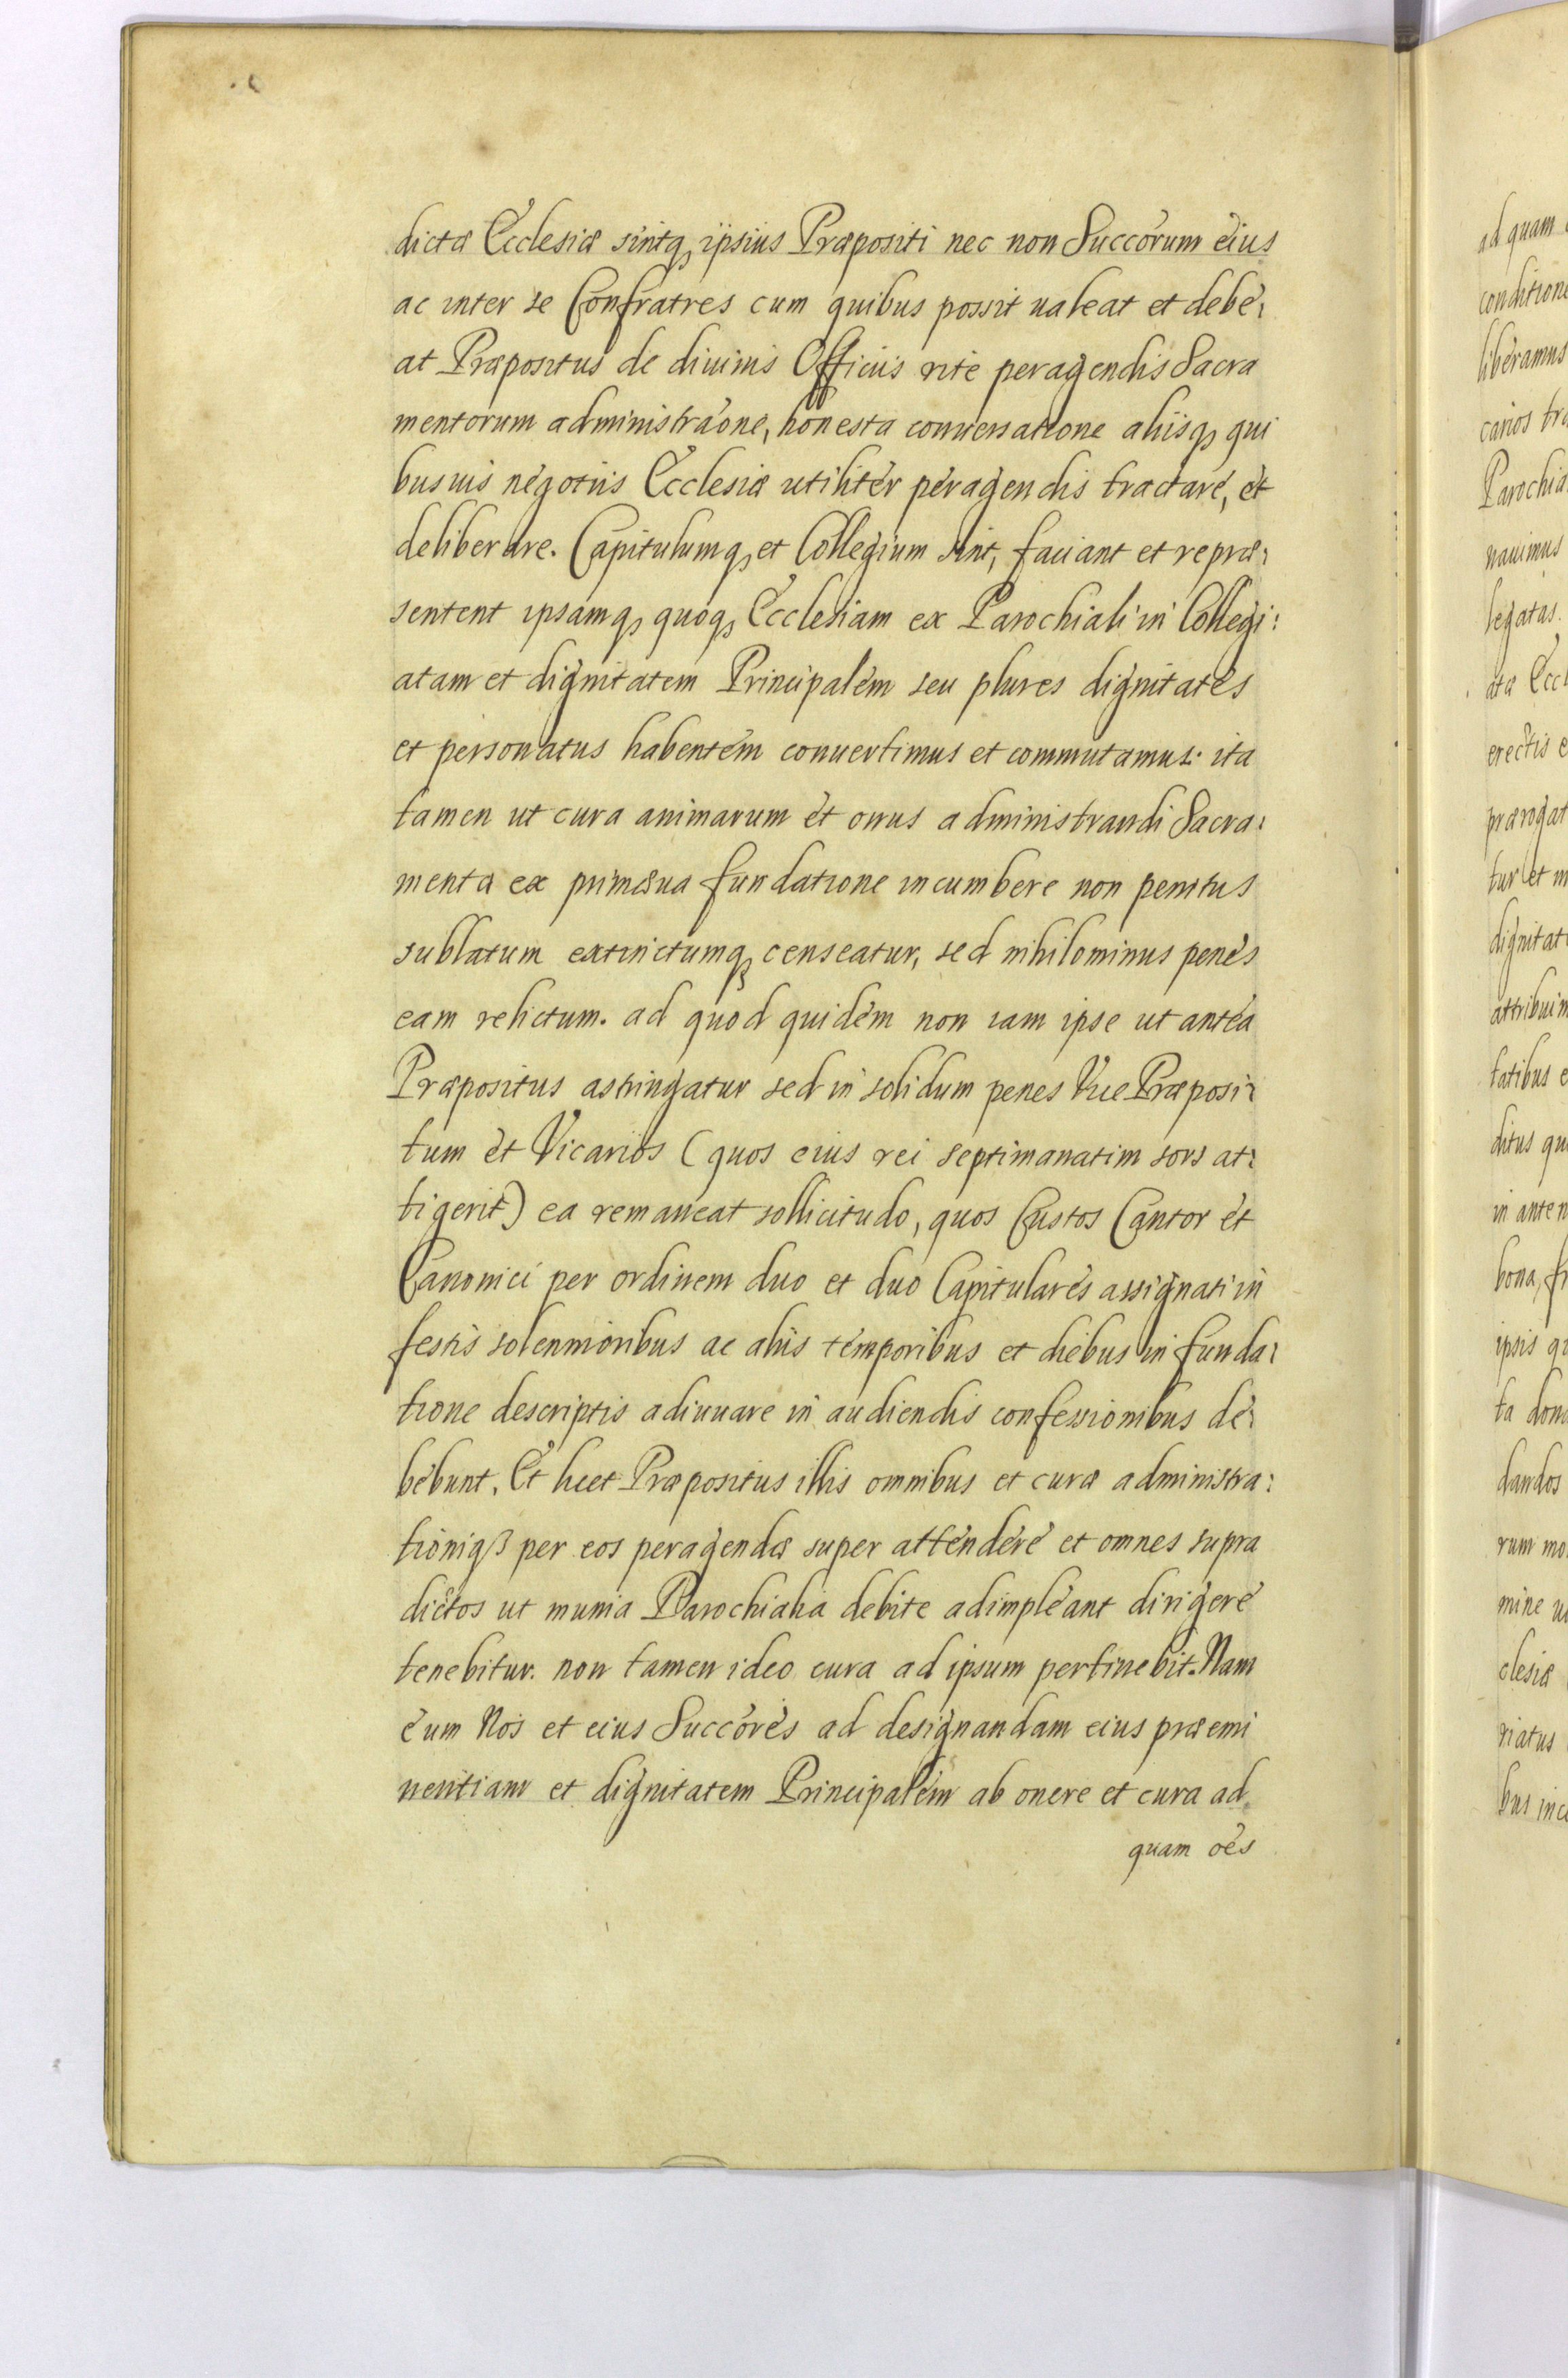 dictæ Ecclesiæ sintq, ipsius Præpositi nec non Succórum eius
ac inter se Confratres cum quibus possit ualeat et debe:
at Præpositus de diuinis Officiis rite peragendis Sacra
mentorum administraóne, honesta conuersatione aliisq, qui
busuis negotiis Ecclesiæ utiliter peragendis tractare, et
deliberare. Capitulumq, et Collegium sint, faciant et repræ:
sentent ipsamq, quoq, Ecclesiam ex Parochiali in Collegi:
atam et dignitatem Principalem seu plures dignitates
et personatus habentem conuertimus et commutamus: ita
tamen ut cura animarum et onus administrandi Sacra:
menta ex primæua fundatione incumbere non penitus
sublatum extinctumq, censeatur, sed nihilominus penes
eam relictum. ad quod quidem non iam ipse ut antea
Præpositus astringatur sed in solidum penes Vice Præposi:
tum et Vicarios (quos eius rei septimanatim sors at:
tigerit) ea remaneat sollicitudo, quos Custos Cantor et
Canonici per ordinem duo et duo Capitulares assignati in
festis solennioribus ac aliis temporibus et diebus in funda:
tione descriptis adiuuare in audiendis confessionibus de:
bebunt. Et licet Præpositus illis omnibus et curæ administra:
tioniqß per eos peragendæ super attendere et omnes supra
dictos ut munia Parochialia debite adimpleant dirigere
tenebitur. non tamen ideo cura ad ipsum pertinebit. Nam
eum Nos et eius Succóres ad designandam eius præemi
nentiam et dignitatem Principalem ab onere et cura ad
quam oés
ad quam
conditione
liberamus
carios tra
Parochia
nauimus
legatas.
atæ Eccl
erectis e
prærogat
tur et m
dignitat
attribuim
tatibus e
ditus qu
in anten
bona, fr
ipsis qu
ta dona
dandos
rum mo
mine u
clesiæ
riatus
bus inc